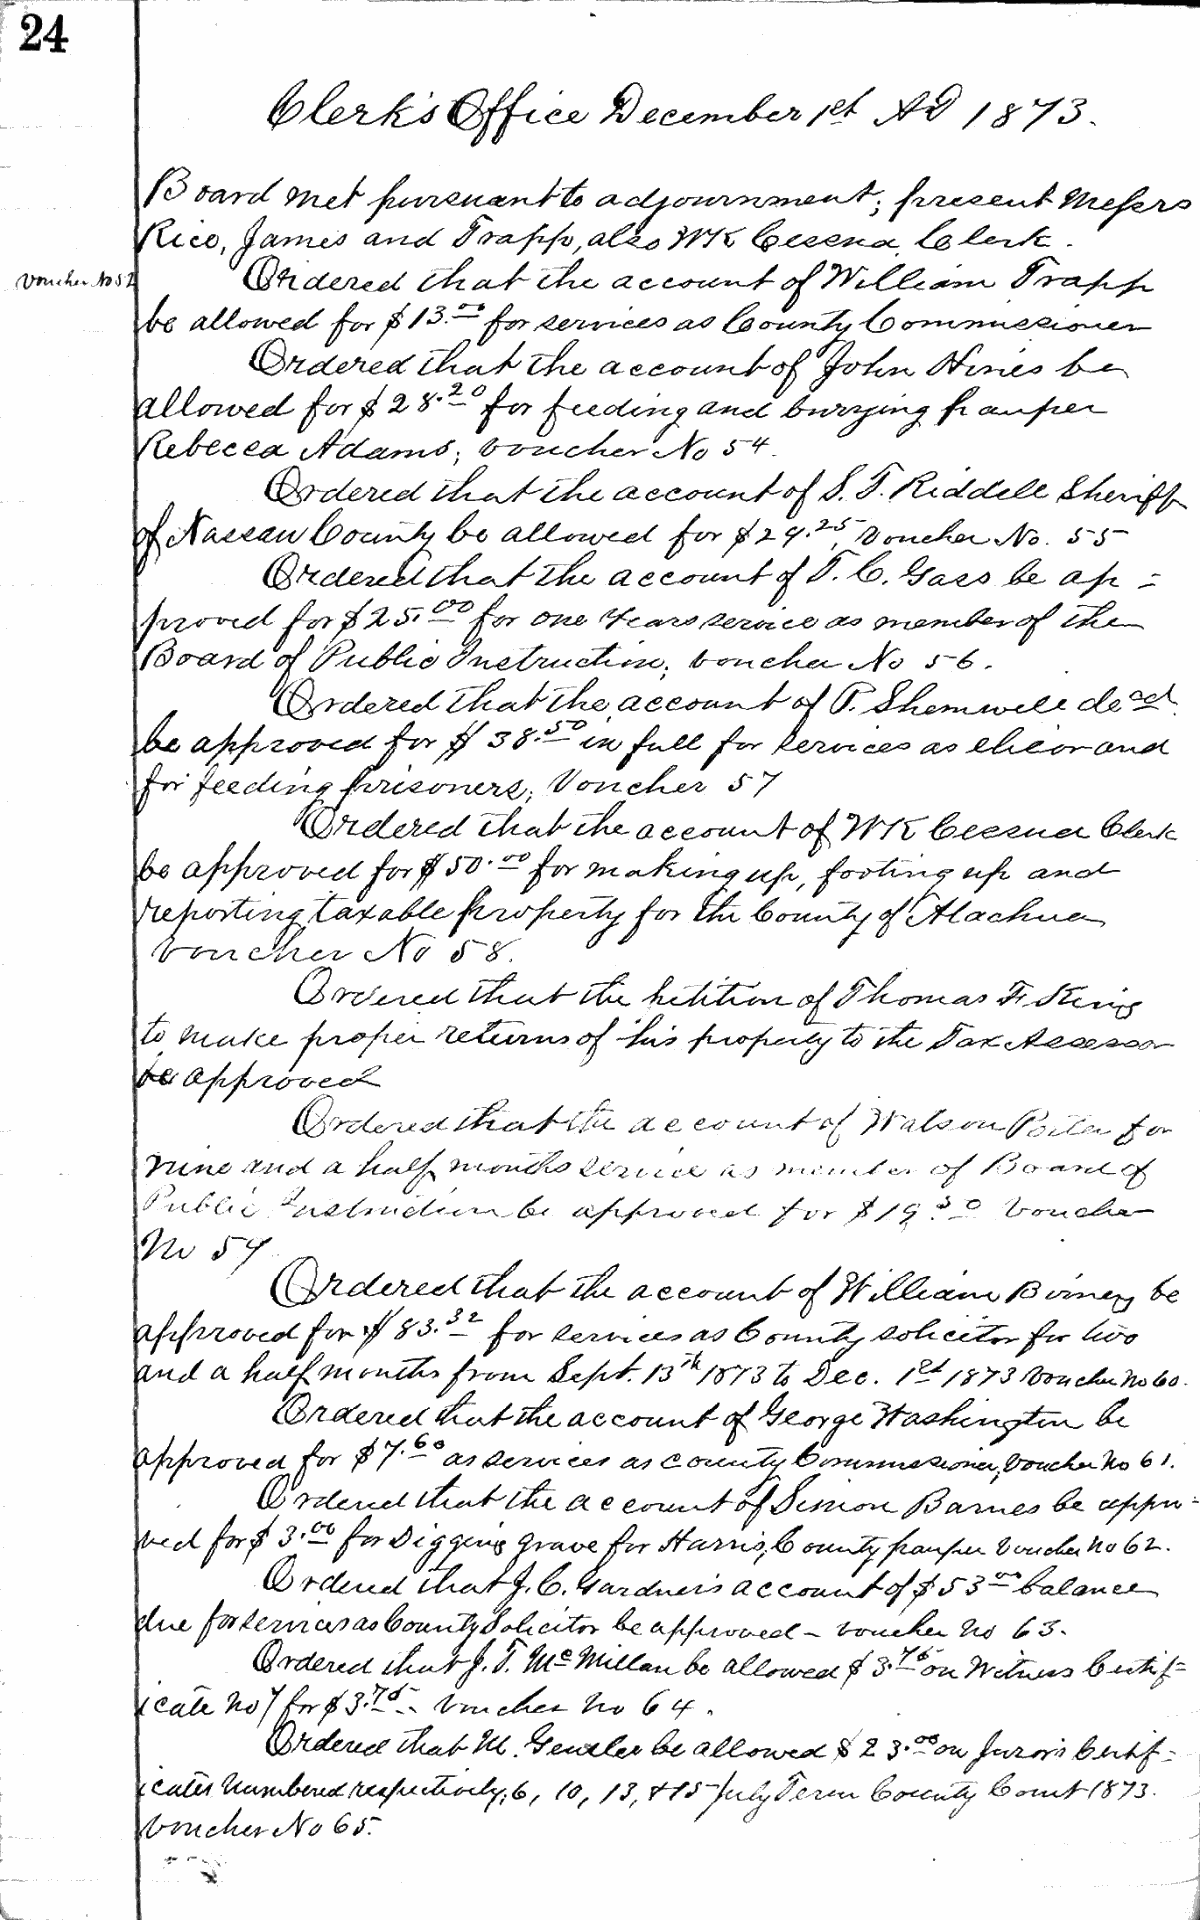 24
Clerk's Office December 1st AD 1873.
Board met pursuant to adjournment; present Messrs
Rice, James and Trapp, also WK Cessna, Clerk.
Voucher No 52
Ordered that the account of William Trapp
be allowed for $13.00 for services as County Commissioner
Ordered that the account of John Hines be
allowed for $28.20 for feeding and burrying pauper
Rebecca Adams; voucher No 54.
Ordered that the account of S. T. Riddell Sheriff
of Nassau County be allowed for $29.25, Voucher No. 55
Ordered that the account of T. C. Gass be ap=
proved for $25.00 for one years service as member of the
Board of Public Instruction; voucher No 56.
Ordered that the account of T. Shemwell decd.
be approved for $38.50 in full for services as elisor and
for feeding prisoners; Voucher 57
Ordered that the account of WK Cessna Clerk
be approved for $50.00 for making up, footing up and
reporting taxable property for the County of Alachua
voucher No 58.
Ordered that the petition of Thomas F. King
to make proper returns of his property to the Tax Assessor
be approved
Ordered that the account of Watson Porter for
nine and a half months service as member of Board of
Public Instruction be approved for $19.50 Voucher
No 59
Ordered that the account of William Birney be
approved for $83.32 for services as County solicitor for two
and a half months from Sept. 13th 1873 to Dec. 1st 1873 Voucher No 60.
Ordered that the account of George Washington be
approved for $7.60 as services as county Commissioner, voucher No 61.
Ordered that the account of Simon Barnes be appro=
ved for $3.00 for Digging grave for Harris, County pauper Voucher No 62.
Ordered that J. C. Gardner's account of $53.00 balance
due for services as County Solicitor be approved – voucher No 63.
Ordered that J. T. McMillan be allowed $3.75 on Witness Certif=
icate No 7 for $3.75 – voucher No 64.
Ordered that M. be allowed $23.00 on Juror's Certif=
icates numbered respectively, 6, 10, 13, & 15 July Term County Court 1873.
Voucher No 65.